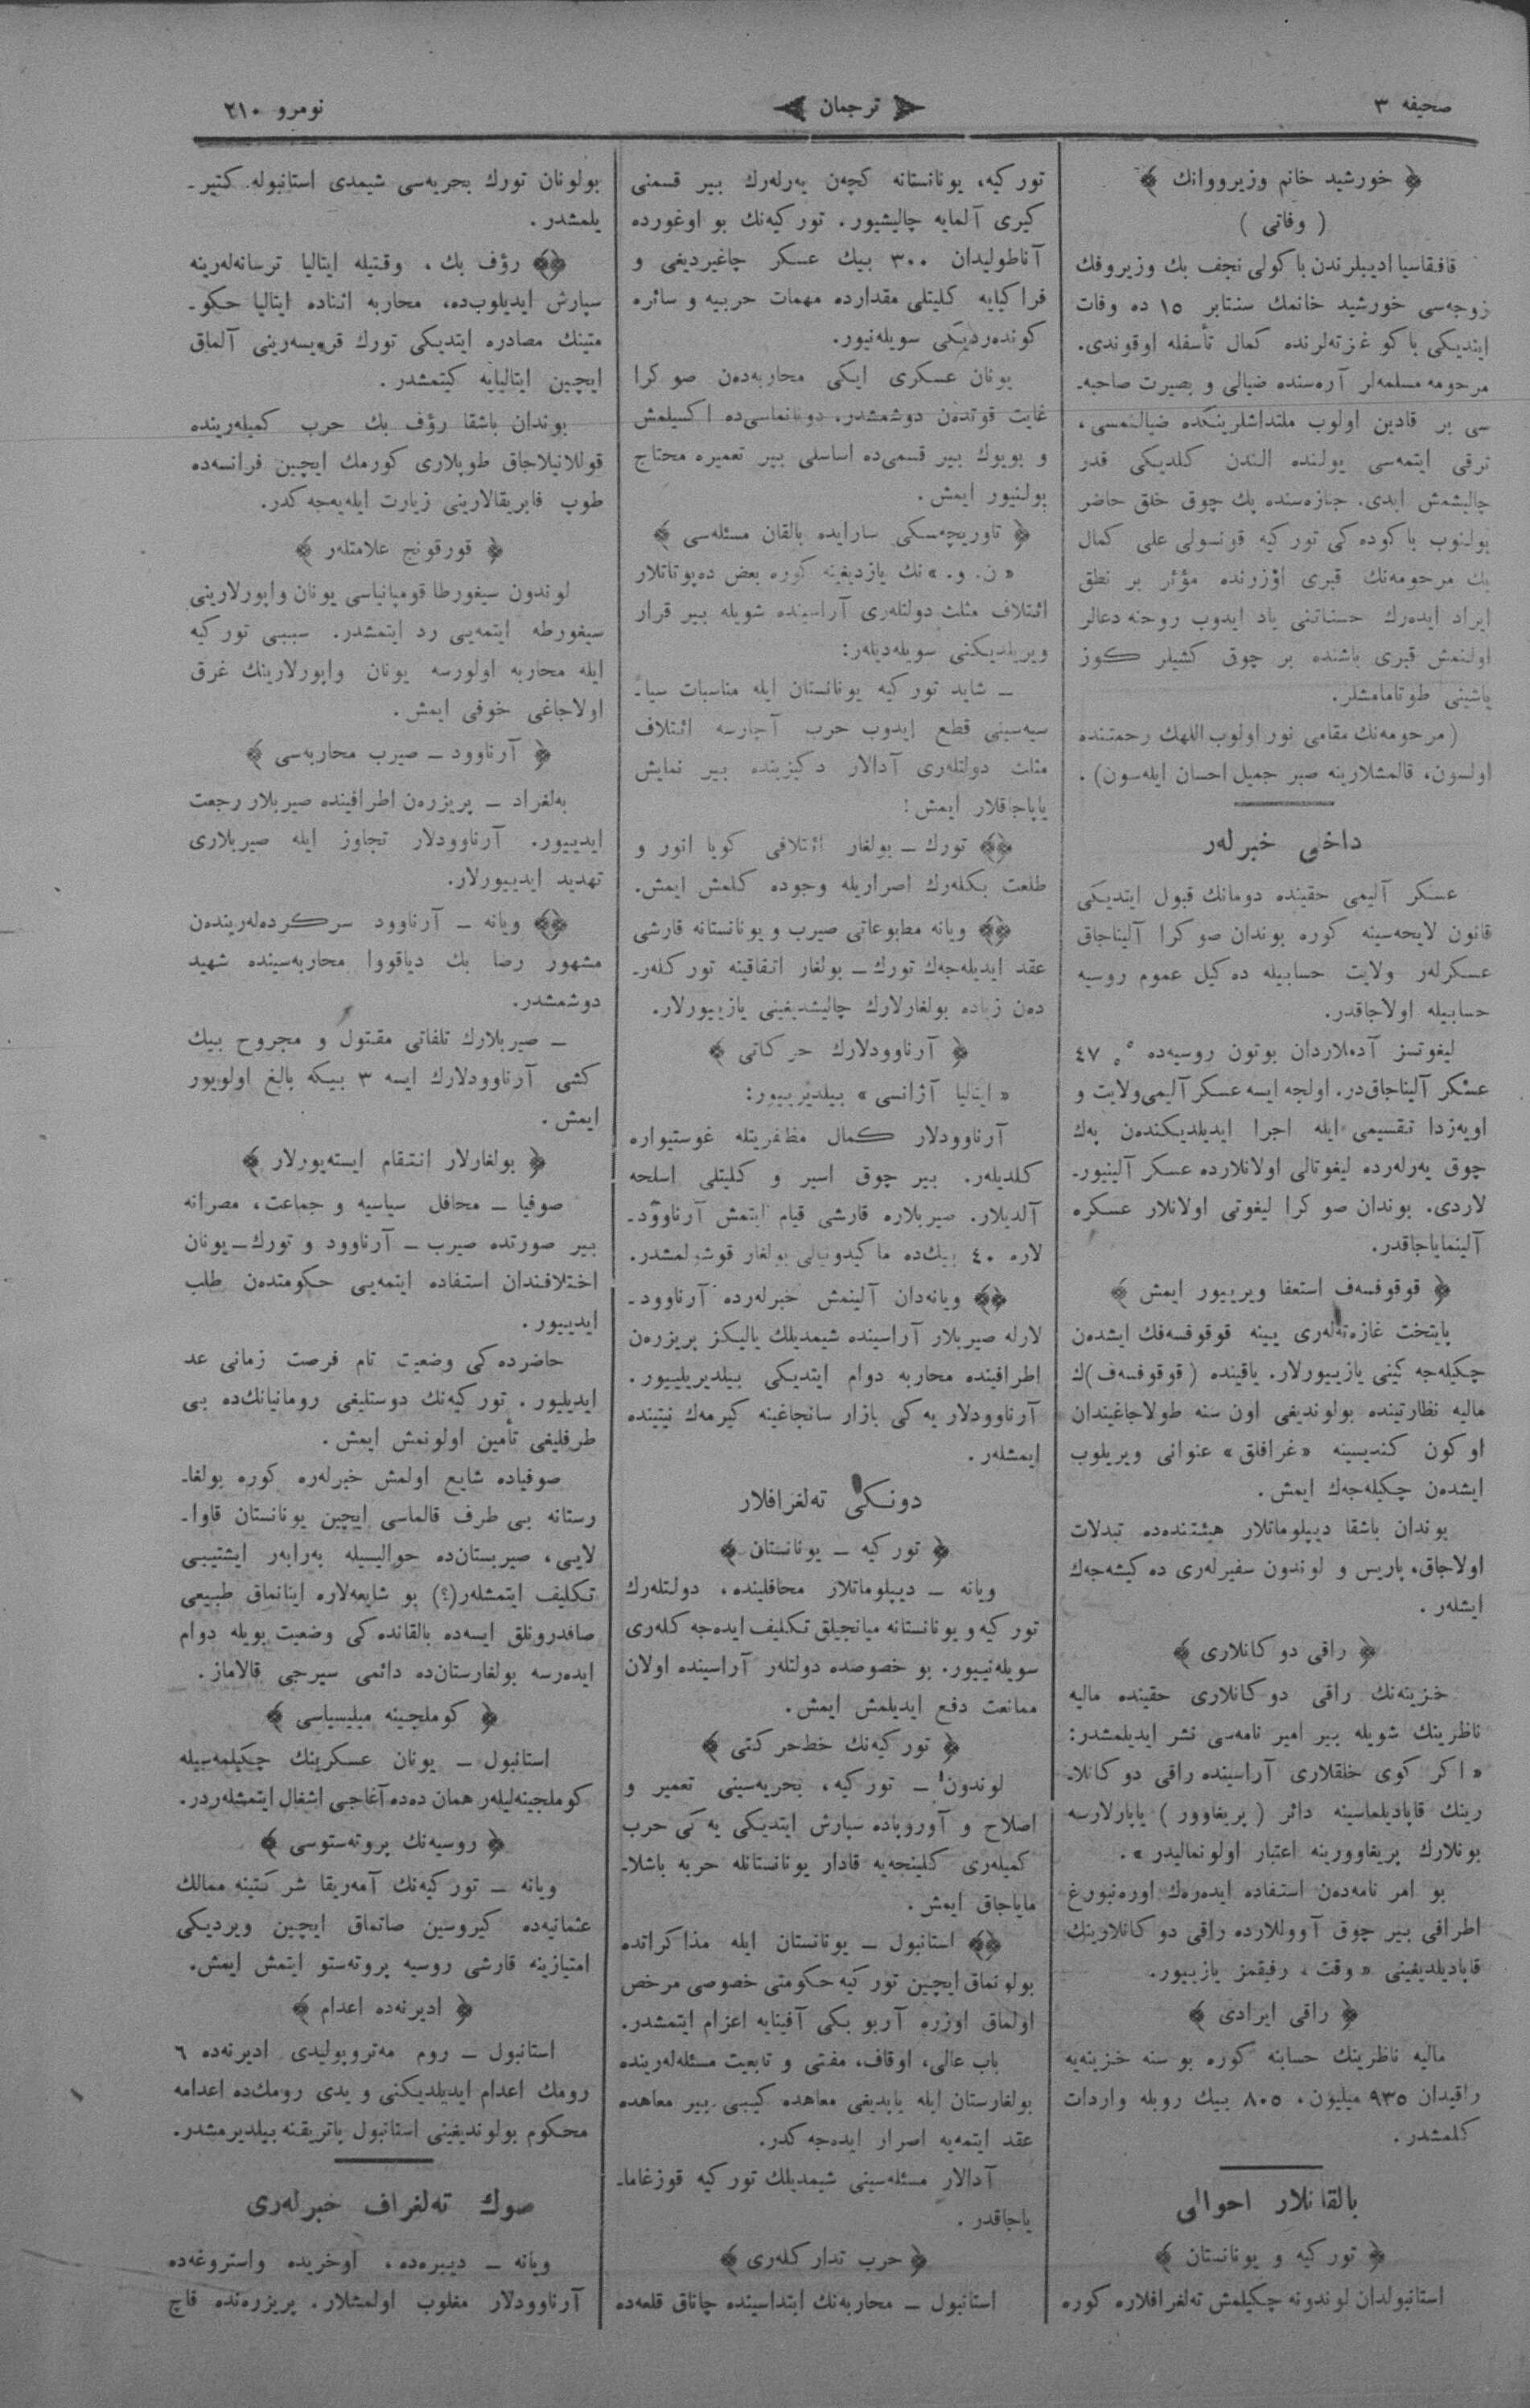 صحیفه ۳
ترجمان
نومرو ۲۱۰
﴿ خورشید خانم وزیرووانك ﴾
( وفاتی )
قافقاسیا ادیبلرندن باكولی نجف بك وزیروفك
زوجه‌سی خورشید خانمك سنتابر ۱۵ ده وفات
ایتدیكی باكو غزته‌لرنده كمال تأسفله اوقوندی.
مرحومه مسلمه‌لر آره‌سنده ضیالی و بصیرت صاحبه‌ـ
سی بر قادین اولوب ملتداشلرینكده ضیالنمسی،
ترقی ایتمه‌سی یولنده الندن كلدیكی قدر
چالیشمش ایدی. جنازه‌سنده پك چوق خلق حاضر
بولنوب باكوده‌كی توركیه قونسولی علی كمال
بك مرحومه‌نك قبری اؤزرنده مؤثر بر نطق
ایراد ایده‌رك حسناتنی یاد ایدوب روحنه دعالر
اولنمش قبری باشنده بر چوق كشیلر كوز
یاشینی طوتامامشلر.
(مرحومه‌نك مقامی نور اولوب اللهك رحمتنده
اولسون، قالمشلارینه صبر جمیل احسان ایله‌سون).
داخلی خبرلەر
عسكر آلیمی حقینده دومانك قبول ایتدیكی
قانون لایحه‌سینه كوره بوندان صوكرا آلیناجاق
عسكرلەر ولایت حسابیله ده‌كیل عموم روسیه
حسابیله اولاجاقدر.
لیغوتسز آدەملاردان بوتون روسیه‌ده ٤٧
عسكر آلیناجاق‌در. اولجه ایسه عسكر آلیمی ولایت و
اویەزدا تقسیمی ایله اجرا ایدیلدیكندەن پەك
چوق یەرلەرده لیغوتالی اولانلارده عسكر آلینیورـ
لاردی. بوندان صوكرا لیغوتی اولانلار عسكره
آلینمایاجاقدر.
﴿ قوقوفسەف استعفا ویرییور ایمش ﴾
پایتخت غازەتەلەری یینه قوقوفسەفك ایشدەن
چكیله‌جه‌كینی یازییورلار. یاقینده (قوقوفسەف)ك
مالیه نظارتینده بولوندیغی اون سنه طولاجاغیندان
اوكون كندیسینه «غرافلق» عنوانی ویریلوب
ایشدەن چكیله‌جەك ایمش.
بوندان باشقا دیپلوماتلار هیئتنده‌ده تبدلات
اولاجاق، پاریس و لوندون سفیرلەری ده‌كیشه‌جەك
ایشلەر.
﴿ راقی دوكانلاری ﴾
خزینه‌نك راقی دوكانلاری حقینده مالیه
ناظرینك شویله بیر امیر نامه‌سی نشر ایدیلمشدر:
«اكر كوی خلقلاری آراسینده راقی دوكانلاـ
رینك قاپادیلماسینه دائر (پریغاوور) یاپارلارسه
بونلارك پریغاوورینه اعتبار اولونمالیدر».
بو امر نامه‌دەن استفاده ایده‌رەك اوره‌نبورغ
اطرافی بیر چوق آووللارده راقی دوكانلارینك
قاپادیلدیغینی «وقت» رفیقمز یازییور.
﴿ راقی ایرادی ﴾
مالیه ناظرینك حسابنه كوره بو سنه خزینه‌یه
راقیدان ۹۳۵ میلیون، ۸۰۵ بیك روبله واردات
كلمشدر.
بالقانلار احوالی
﴿ توركیه و یونانستان ﴾
استانبولدان لوندونه چكیلمش تەلغرافلاره كوره
توركیه، یونانستانه كچەن یەرلەرك بیر قسمنی
كیری آلمایه چالیشیور. توركیه‌نك بو اوغورده
آناطولیدان ۳۰۰ بیك عسكر چاغیردیغی و
فراكیایه كلیتلی مقدارده مهمات حربیه و سائره
كونده‌ردیكی سویله‌نیور.
یونان عسكری ایكی محاربه‌دەن صوكرا
غایت قوتدەن دوشمشدر. دونانماسی‌ده اكسیلمش
و بویوك بیر قسمی‌ده اساسلی بیر تعمیره محتاج
بولنیور ایمش.
﴿ تاوریچەسكی سارایده بالقان مسئله‌سی ﴾
«ن. و.» نك یازدیغینه كوره بعض ده‌پوتاتلار
ائتلاف مثلث دولتلەری آراسینده شویله بیر قرار
ویریلدیكنی سویله‌دیلەر:
ـ شاید توركیه یونانستان ایله مناسبات سیاـ
سیه‌سینی قطع ایدوب حرب آچارسه ائتلاف
مثلث دولتلەری آدالار دكیزینده بیر نمایش
یاپاجاقلار ایمش:
﴿﴾ تورك ـ بولغار ائتلافی كویا انور و
طلعت بكلەرك اصراریله وجوده كلمش ایمش.
﴿﴾ ویانه مطبوعاتی صیرب و یونانستانه قارشی
عقد ایدیله‌جەك تورك ـ بولغار اتفاقینه توركلەرـ
دەن زیاده بولغارلارك چالیشدیغینی یازییورلار.
﴿ آرناوودلارك حركاتی ﴾
«ایتالیا آژانسی» بیلدیرییور:
آرناوودلار كمال مظفریتله غوستیواره
كلدیلەر. بیر چوق اسیر و كلیتلی اسلحه
آلدیلار. صیربلاره قارشی قیام ایتمش آرناوودـ
لاره ٤٠ بیك‌ده ماكیدونیالی بولغار قوشولمشدر.
﴿﴾ ویانه‌دان آلینمش خبرلەرده آرناوودـ
لارله صیربلار آراسینده شیمدیلك یالیكز پریزرەن
اطرافینده محاربه دوام ایتدیكی بیلدیریلییور.
آرناوودلار یه‌كی بازار سانجاغینه كیرمەك نیتینده
ایمشلەر.
دونكی تەلغرافلار
﴿ توركیه ـ یونانستان ﴾
ویانه ـ دیپلوماتلار محافلینده، دولتلەرك
توركیه و یونانستانه میانجیلق تكلیف ایده‌جه‌كلەری
سویله‌نییور. بو خصوصده دولتلەر آراسینده اولان
ممانعت دفع ایدیلمش ایمش.
﴿ توركیه‌نك خط‌حركتی ﴾
لوندون ـ توركیه، بحریه‌سینی تعمیر و
اصلاح و آوروپاده سپارش ایتدیكی یه‌كی حرب
كمیلەری كلینجه‌یه قادار یونانستانله حربه باشلاـ
مایاجاق ایمش.
﴿﴾ استانبول ـ یونانستان ایله مذاكراتده
بولونماق ایچین توركیه حكومتی خصوصی مرخص
اولماق اوزره آربو بكی آفینایه اعزام ایتمشدر.
باب عالی، اوقاف، مفتی و تابعیت مسئله‌لەرینده
بولغارستان ایله یاپدیغی معاهده كیبی بیر معاهده
عقد ایتمه‌یه اصرار ایده‌جه‌كدر.
آدالار مسئله‌سینی شیمدیلك توركیه قوزغاماـ
یاجاقدر.
﴿ حرب تداركلەری ﴾
استانبول ـ محاربه‌نك ابتداسینده چاناق قلعه‌ده
بولونان تورك بحریه‌سی شیمدی استانبوله كتیرـ
یلمشدر.
﴿﴾ رؤف بك، وقتیله ایتالیا ترسانه‌لەرینه
سپارش ایدیلوب‌ده، محاربه اثناده ایتالیا حكوـ
متینك مصادره ایتدیكی تورك قرویسەرینی آلماق
ایچین ایتالیایه كیتمشدر.
بوندان باشقا رؤف بك حرب كمیلەرینده
قوللانیلاجاق طوپلاری كورمك ایچین فرانسه‌ده
طوپ فابریقالارینی زیارت ایله‌یه‌جه‌كدر.
﴿ قورقونج علامتلەر ﴾
لوندون سیغورطا قومپانیاسی یونان واپورلارینی
سیغورطه ایتمه‌یی رد ایتمشدر. سببی توركیه
ایله محاربه اولورسه یونان واپورلارینك غرق
اولاجاغی خوفی ایمش.
﴿ آرناوود ـ صیرب محاربه‌سی ﴾
بەلغراد ـ پریزرەن اطرافینده صیربلار رجعت
ایدییور. آرناوودلار تجاوز ایله صیربلاری
تهدید ایدییورلار.
﴿﴾ ویانه ـ آرناوود سركرده‌لەریندەن
مشهور رضا بك دیاقووا محاربه‌سینده شهید
دوشمشدر.
ـ صیربلارك تلفاتی مقتول و مجروح بیك
كشی آرناوودلارك ایسه ۳ بیكه بالغ اولویور
ایمش.
﴿ بولغارلار انتقام ایسته‌یورلار ﴾
صوفیا ـ محافل سیاسیه و جماعت، مصرانه
بیر صورتده صیرب ـ آرناوود و تورك ـ یونان
اختلافندان استفاده ایتمه‌یی حكومتدەن طلب
ایدییور.
حاضرده‌كی وضعیت تام فرصت زمانی عد
ایدیلیور. توركیه‌نك دوستلیغی رومانیانك‌ده بی
طرفلیغی تأمین اولونمش ایمش.
صوفیاده شایع اولمش خبرلەره كوره بولغاـ
رستانه بی طرف قالماسی ایچین یونانستان قاواـ
لایی، صیربستان‌ده حوالیسیله بەرابەر ایشتیبی
تكلیف ایتمشلەر(؟) بو شایعه‌لاره اینانماق طبیعی
صافدرونلق ایسه‌ده بالقانده‌كی وضعیت بویله دوام
ایده‌رسه بولغارستان‌ده دائمی سیرجی قالاماز.
﴿ كوملجینه میلیسیاسی ﴾
استانبول ـ یونان عسكرینك چكیلمه‌سیله
كوملجینه‌لیلەر همان ده‌ده آغاجی اشغال ایتمشلەردر.
﴿ روسیه‌نك پروته‌ستوسی ﴾
ویانه ـ توركیه‌نك آمەریقا شركتینه ممالك
عثمانیه‌ده كیروسین صاتماق ایچین ویردیكی
امتیازینه قارشی روسیه پروته‌ستو ایتمش ایمش.
﴿ ادیرنه‌ده اعدام ﴾
استانبول ـ روم مەتروپولیدی ادیرنه‌ده ٦
رومك اعدام ایدیلدیكنی و یدی رومك‌ده اعدامه
محكوم بولوندیغینی استانبول پاتریقنه بیلدیرمشدر.
صوك تەلغراف خبرلەری
ویانه ـ دیبره‌ده، اوخریده واستروغه‌ده
آرناوودلار مغلوب اولمشلار. پریزره‌نده قاچ